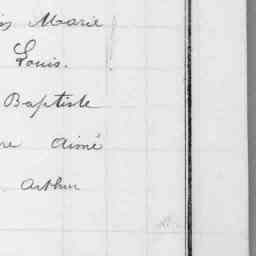 Marie
Louis.
Baptiste
re Aimé
Arthur